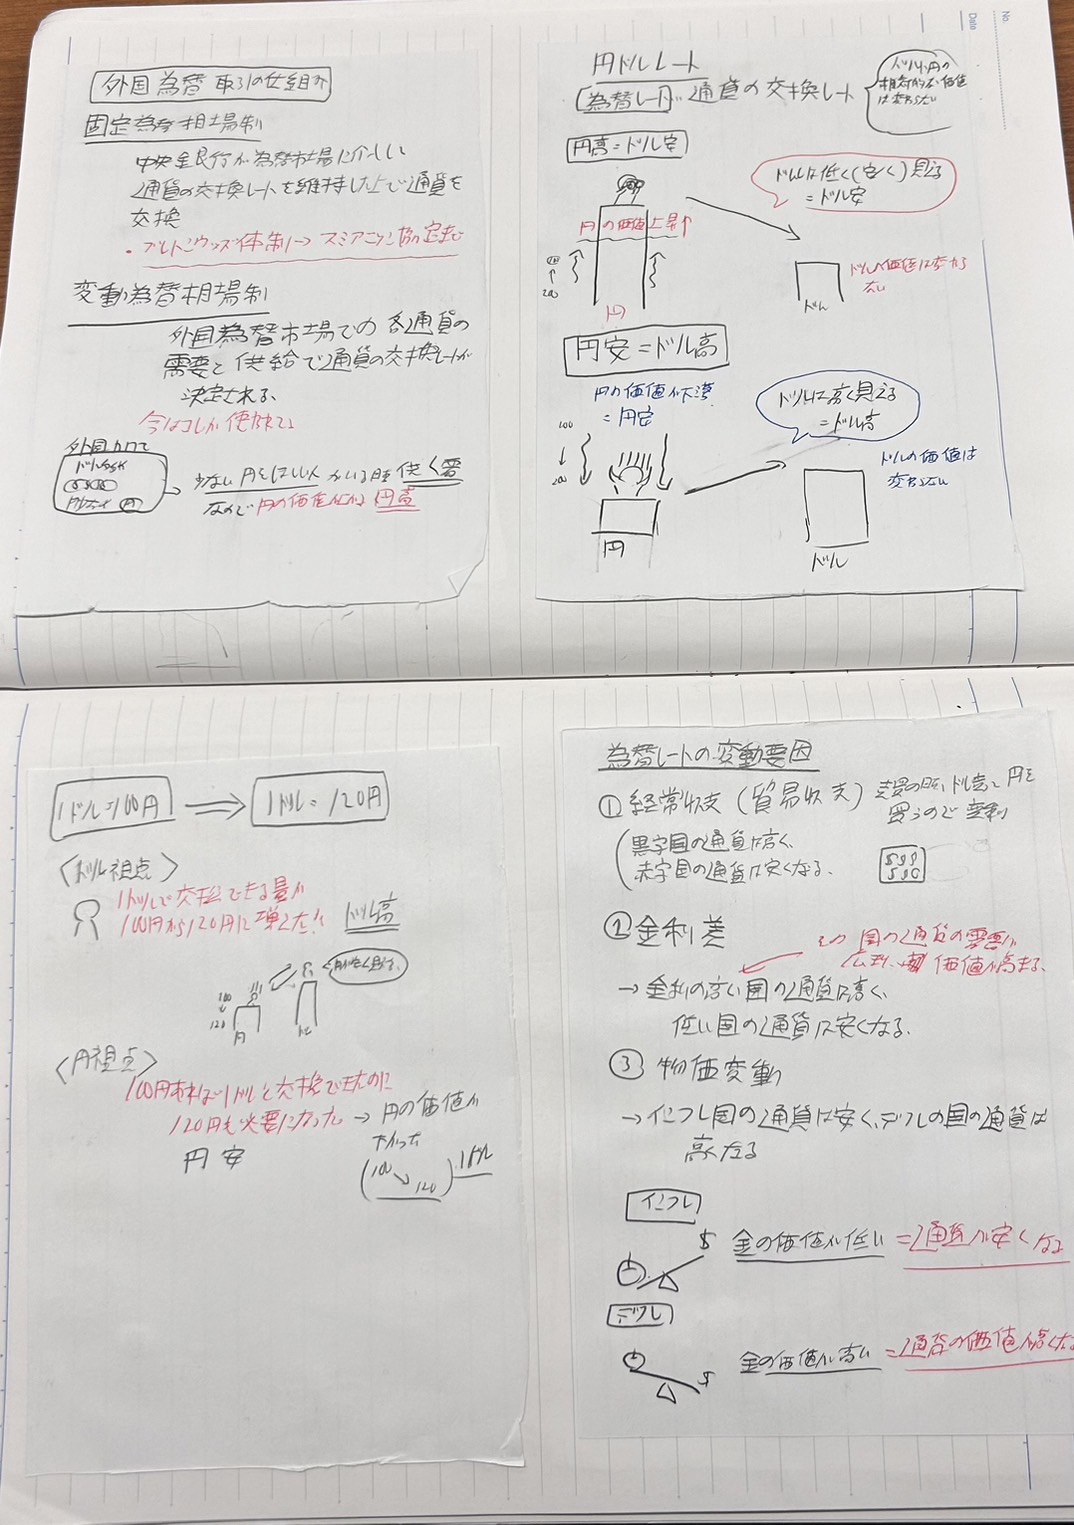 外国為替取引の仕組み
固定為替相場制
中央銀行が為替市場に介入し
通貨の交換レートを維持した上で通貨を
交換
・ブレトンウッズ体制→スミソニアン協定まで
変動為替相場制
外国為替市場での各通貨の
需要と供給で通貨の交換レートが
決定される、
今はコレが使われてる
少ない円をほしい人がいる時 供<需
なので円の価値が上がる 円高
円ドルレート
為替レート 通貨の交換レート
円高=ドル安
ドルは低く(安く)見える
=ドル安
円の価値上昇↑
100
↑
200
円
ドルの価値は変わら
ない
ドル
円安=ドル高
円の価値が下落
=円安
100
↓
200
円
ドルは高く見える
=ドル高
ドルの価値は
変わらない
ドル
1ドル=100円 ⇒ 1ドル=120円
〈ドル視点〉
1ドルで交換できる量が
100円から120円に増えた!! ドル高
100
↓
120
円
ドル
〈円視点〉
100円あれば1ドルと交換できたのに
120円も必要になった → 円の価値が
下がった
円安
(100↘120) 1ドル
為替レートの変動要因
①経常収支(貿易収支)
黒字国の通貨は高く、
赤字国の通貨は安くなる、
②金利差
その国の通貨の需要が
価値が高まる、
→金利の高い国の通貨は高く、
低い国の通貨は安くなる、
③物価変動
→インフレ国の通貨は安く、デフレの国の通貨は
高くなる
インフレ
$ 金の価値が低い =通貨が安くなる
デフレ
$ 金の価値が高い =通貨の価値が高くなる